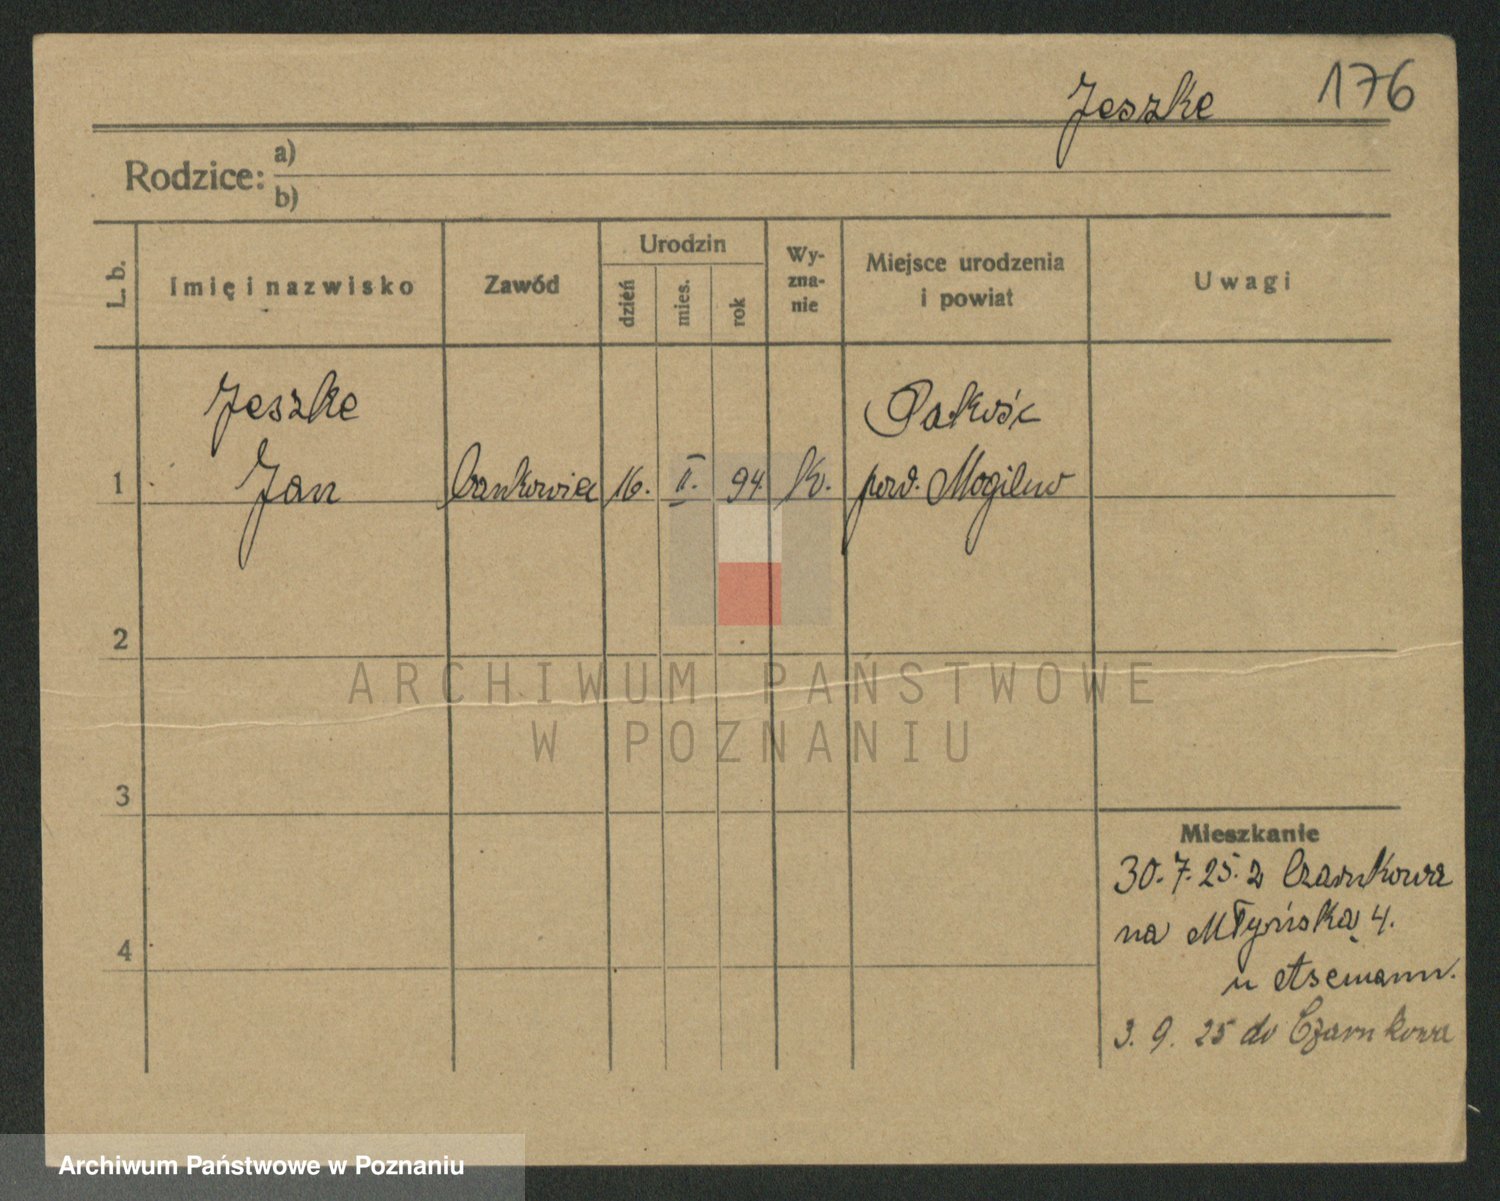 Jeszke 176
Rodzice: a)
b)
L. b.
Imię i nazwisko
Zawód
Urodzin
dzień
mies.
rok
Wy-
zna-
nie
Miejsce urodzenia
i powiat
Uwagi
Jeszke
Pakość
1 Jan 16. II. 94. k. pow. Mogilno
2
ARCHIWUM PAŃSTWOWE
W POZNANIU
3
Mieszkanie
30. 7. 25. z Czarnkowa
na Młyńską 4.
4
u Assmann.
3. 9. 25 do Czarnkowa
Archiwum Państwowe w Poznaniu